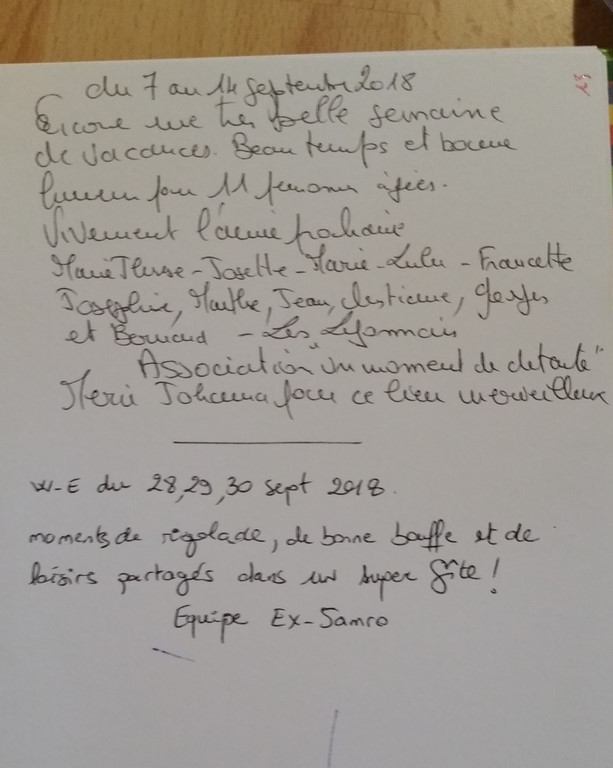 du 7 au 14 septembre 2018
Encore une très belle semaine
de vacances. Beau temps et bonne
humeur pour 11 personnes âgées.
Vivement l'année prochaine
Marie Thérèse - Josette - Marie - Lulu - Francette
Joséphine, Marthe, Jean, Christiane, Georges
et Bernard - Les Lyonnais
Association "un moment de detente"
Merci Johanna pour ce lieu merveilleux
W-E du 28,29,30 sept 2018.
moments de rigolade, de bonne bouffe et de
loisirs partagés dans un super Gîte!
Equipe Ex-Samro